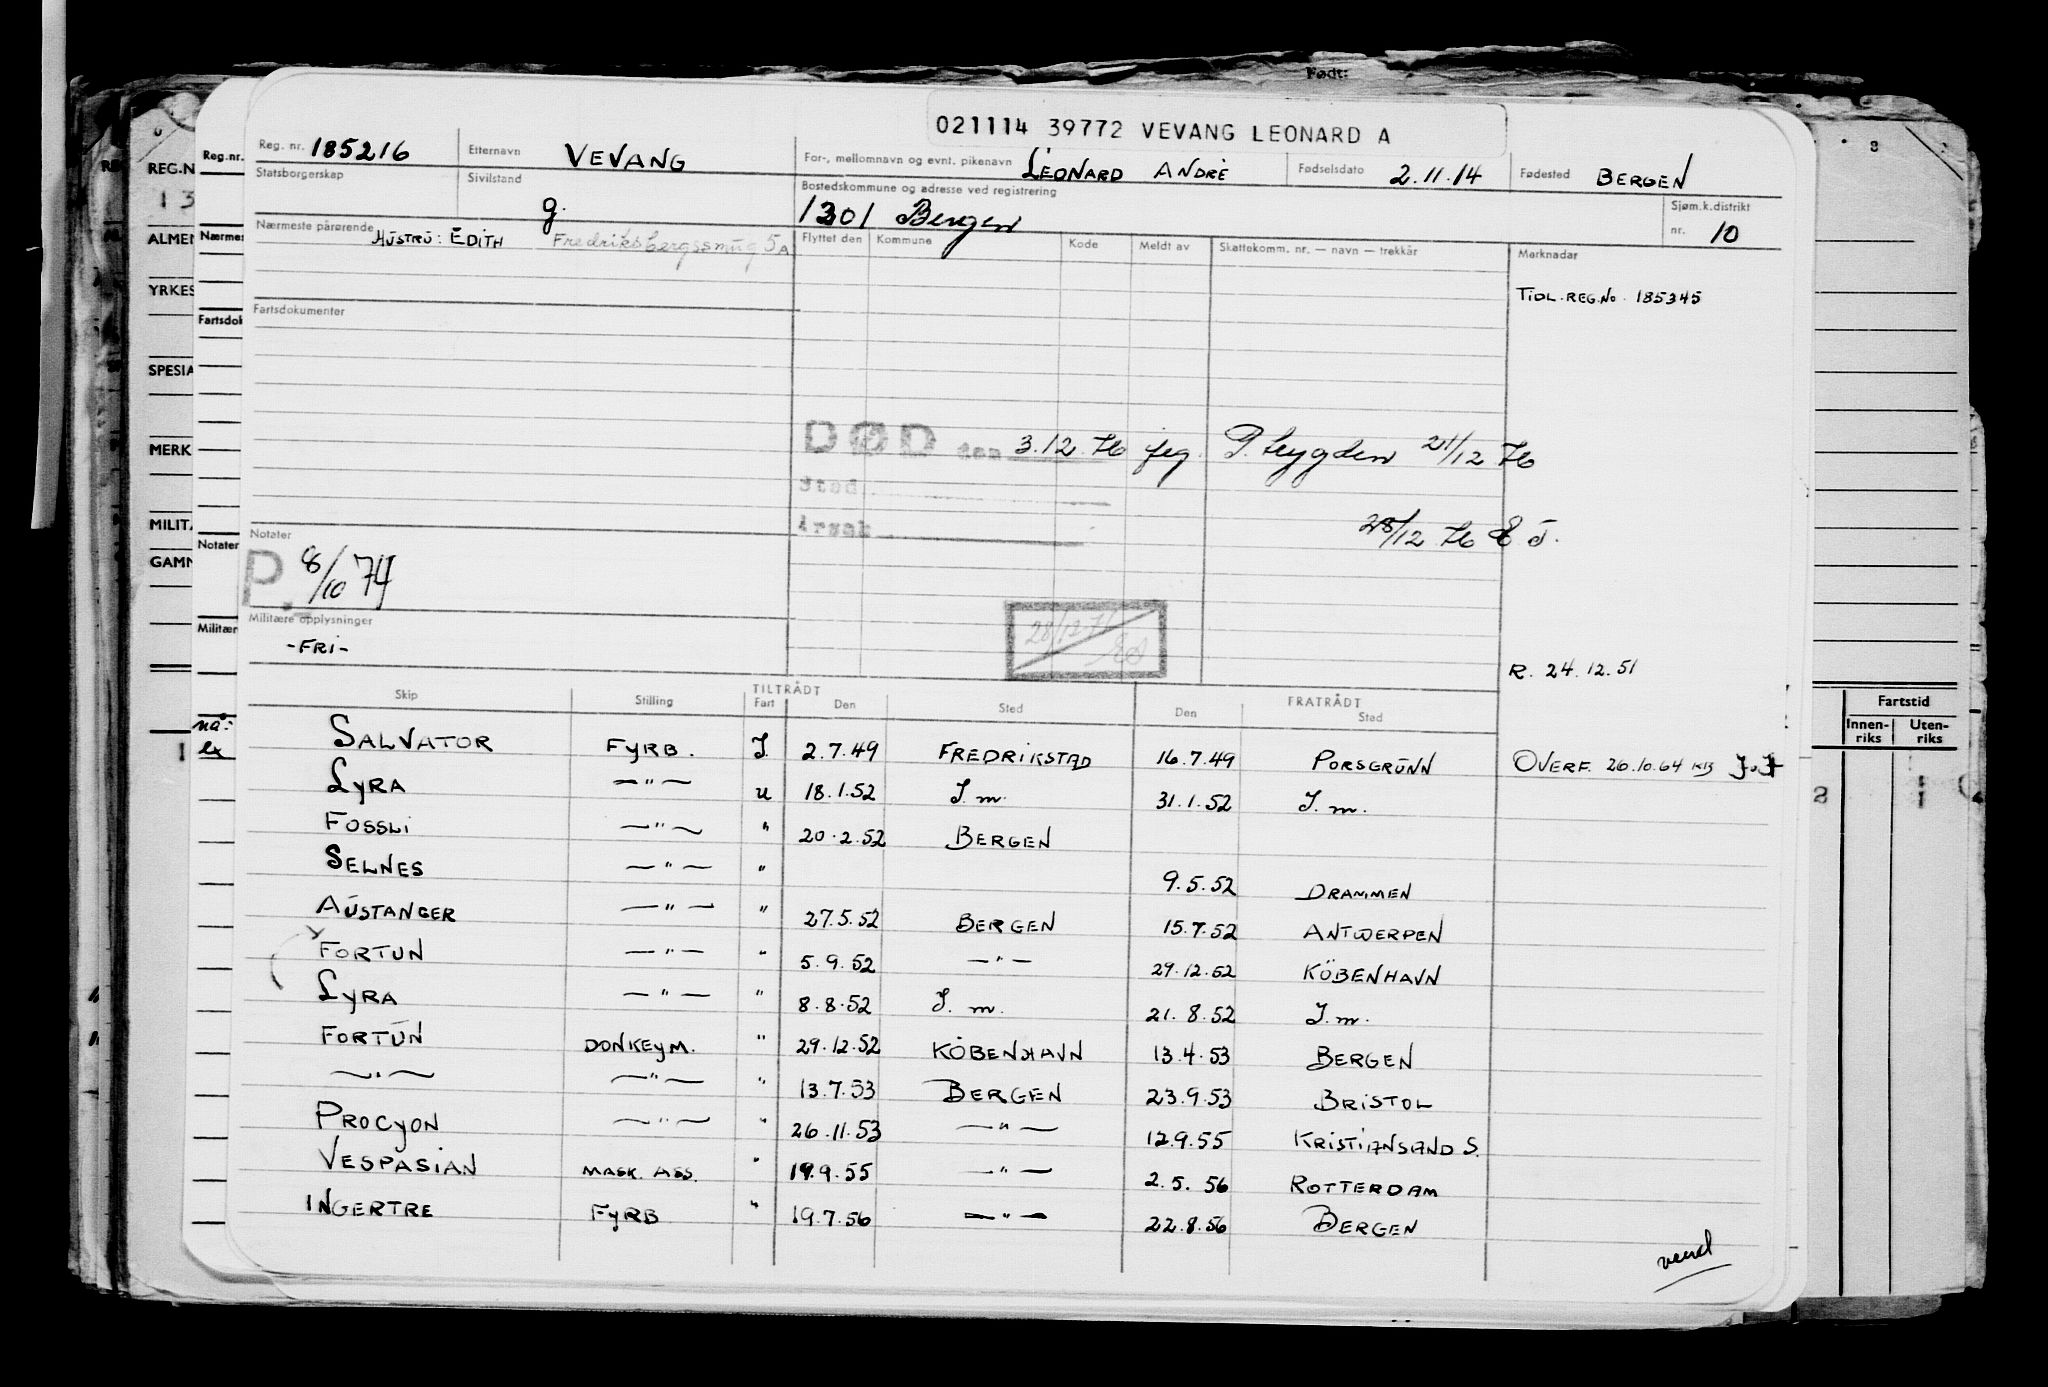 Født:
021114 39772 VEVANG LEONARD A
Reg. nr. 185216 Etternavn VEVANG For-, mellomnavn og evnt. pikenavn LEONARD ANDRÈ Fødselsdato 2.11.14 Fødested BERGEN
Statsborgerskap Sivilstand g. Bostedskommune og adresse ved registrering 1301 Bergen Sjøm.k.distrikt nr. 10
Nærmeste pårørende HUSTRU: EDITH Fredriksbergssmug 5A Flyttet den Kommune Kode Meldt av Skattekomm. nr. — navn — trekkår Merknadar
TIDL. REG. No. 185345
Fartsdokumenter
DØD den 3.12.76 flg. P. trygden 21/12 76
Sted
Årsak 28/12 76
Notater
P. 8/10 74
Militære opplysninger 28/12 76
-FRI-
R. 24.12.51
Skip Stilling TILTRÅDT Fart Den Sted FRATRÅDT Den Sted
SALVATOR FYRB. I. 2.7.49 FREDRIKSTAD 16.7.49 PORSGRUNN OVERF. 20.10.64
LYRA —"— u 18.1.52 I. m. 31.1.52 I. m.
FOSSLI —"— " 20.2.52 BERGEN
SELNES —"— " 9.5.52 DRAMMEN
AUSTANGER —"— " 27.5.52 BERGEN 15.7.52 ANTWERPEN
FORTUN —"— " 5.9.52 —"— 29.12.52 KÖBENHAVN
LYRA —"— " 8.8.52 I. m. 21.8.52 I. m.
FORTUN DONKEYM. " 29.12.52 KÖBENHAVN 13.4.53 BERGEN
—"— —"— " 13.7.53 BERGEN 23.9.53 BRISTOL
PROCYON —"— " 26.11.53 —"— 12.9.55 KRISTIANSAND S.
VESPASIAN MASK. ASS. " 19.9.55 —"— 2.5.56 ROTTERDAM
INGERTRE FYRB " 19.7.56 —"— 22.8.56 BERGEN
vend
Reg.nr.
Nærmes
Fartsdok
Notater
Militær
nå:
ex
REG.N
13
ALMEN
YRKES
SPESIA
MERK
MILITÆ
GAMN
1
8
Fartstid
Innen-riks Uten-riks
2
1
1